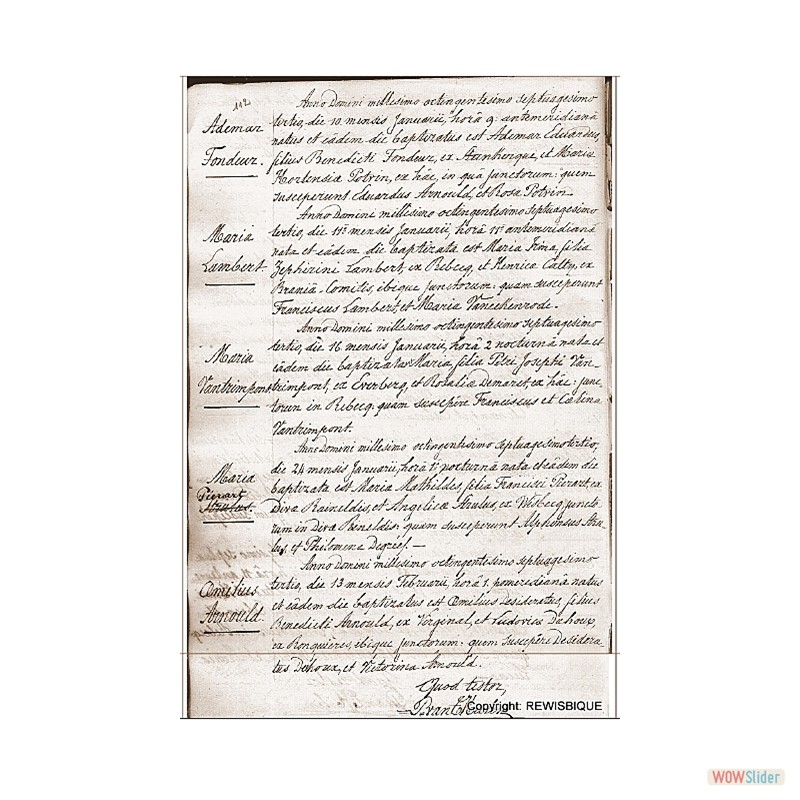 112
Ademar
Fondeur.
Anno Domini millesimo octingentesimo septuagesimo
tertio, die 10 mensis Januarii, horâ 9â antemeridianâ
natus et eâdem die baptizatus est Ademar Eduardus,
filius Benedicti Fondeur, ex Steenkerque, et Maria
Hortensia Potvin, ex hâc, in quâ junctorum: quem
susceperunt Eduardus Arnould, et Rosa Potvin.
Maria
Lambert.
Anno Domini millesimo octingentesimo septuagesimo
tertio, die 11â mensis Januarii, horâ 11â antemeridianâ
nata et eâdem die baptizata est Maria Irma, filia
Zephirini Lambert, ex Rebecq, et Henrica Catty, ex
Braniâ-Comitis, ibique junctorum: quam susceperunt
Franciscus Lambert, et Maria Vaneckenrode.
Maria
Vantrimpont
Anno Domini millesimo octingentesimo septuagesimo
tertio, die 16 mensis Januarii, horâ 2 nocturnâ nata et
eâdem die baptizata Maria, filia Josephi Van-
trimpont, ex Everberg, et Rosalia Demaret, ex hâc: junc-
torum in Rebecq: quam suscepêre Franciscus et Catina
Vantrimpont.
Maria
Pierart
Strulus.
Anno Domini millesimo octingentesimo septuagesimo tertio,
die 24 mensis Januarii, horâ nocturnâ nata et eâdem die
baptizata est Maria Mathildes, filia Francisci Pierart, ex
Divâ Raineldis, et Angelica Strulus, ex Wisbecq, juncto-
rum in Divâ Reneldis: quam susceperunt Alphonsus Stru-
lus, et Philomena Degréef. —
Œmilius
Arnould.
Anno Domini millesimo octingentesimo septuagesimo
tertio, die 13 mensis Februarii, horâ 1. pomeridianâ natus
et eâdem die baptizatus est Œmilius Desideratus, filius
Benedicti Arnould, ex Virginal, et Ludovica Dehoux,
ex Ronquières, ibique junctorum: quem suscepêre Desidera-
tus Dehoux, et Victorina Arnould.
Quod testor,
Copyright: REWISBIQUE
WOWSlider